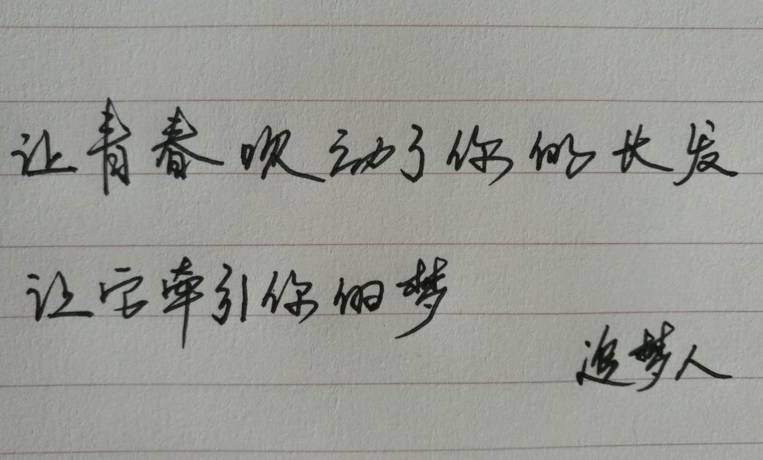 让青春吹动了你的长发
让它牵引你的梦
追梦人